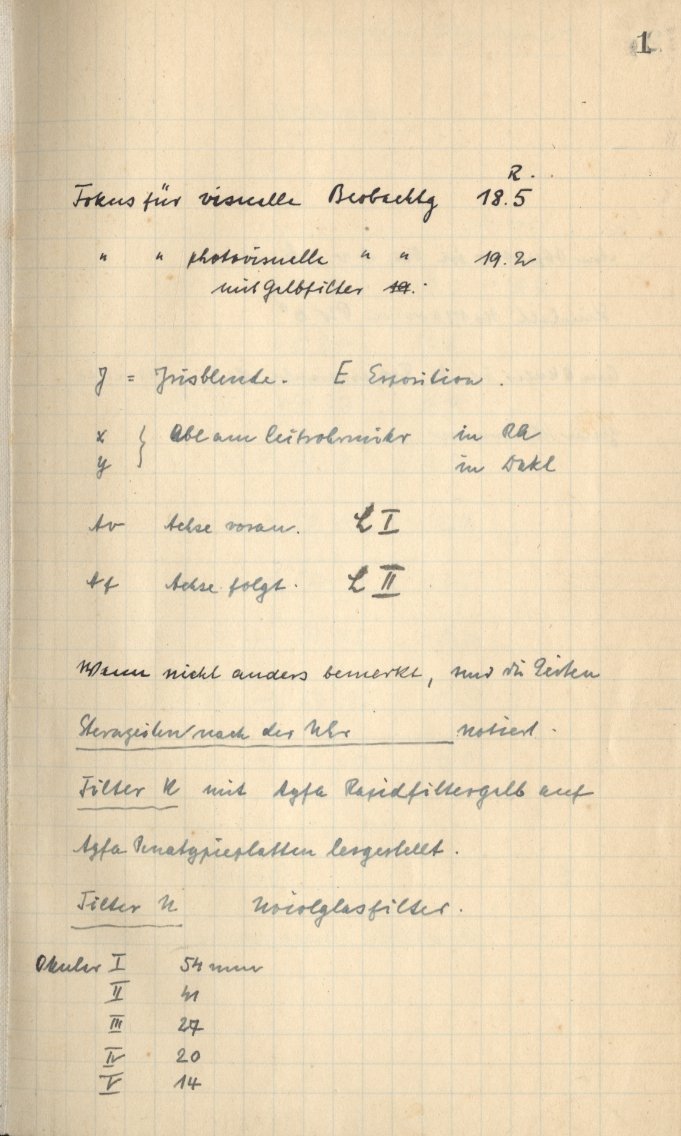 1
R.
Fokus für visuelle Beobachtg 18.5
" " photovisuelle " " 19.2
mit Gelbfilter 19.
J = Irisblende. E Exposition.
x } Abl am Leitrohrmikr in RA
y in Dekl
Av Achse voran. L I
Af Achse folgt. L II
Wenn nicht anders bemerkt, sind die Zeiten
Sternzeiten nach der Uhr notiert.
Filter K mit Agfa Rapidfiltergelb auf
Agfa hergestellt.
Filter N
Okular I 54 mm
II 41
III 27
IV 20
V 14